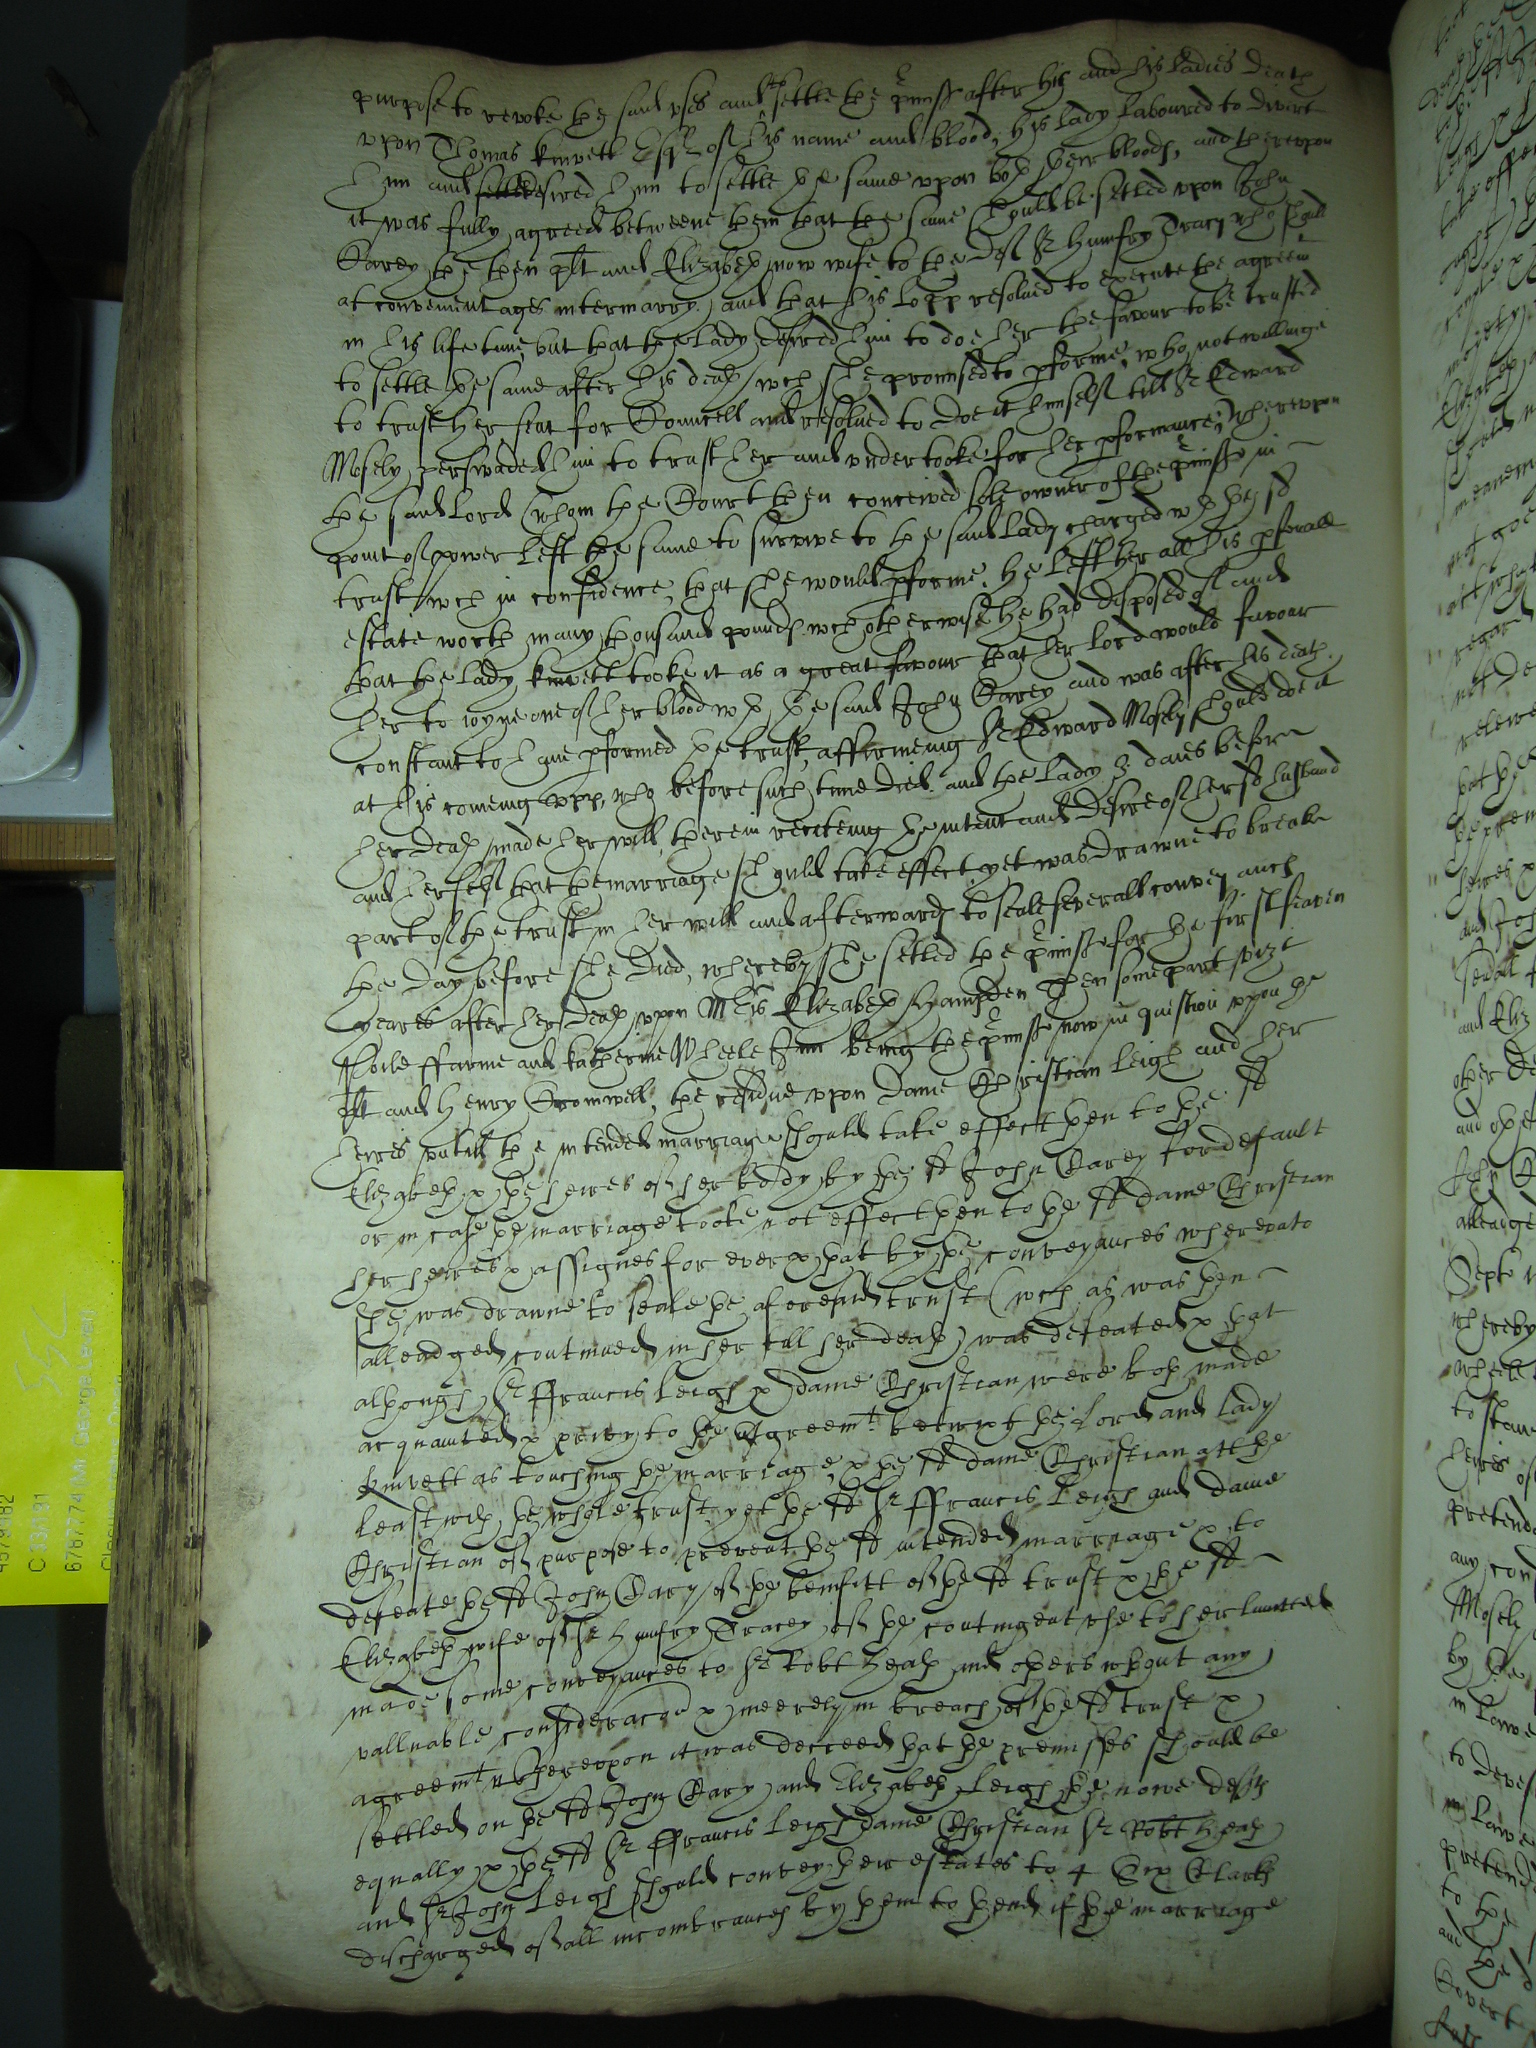 purpose to revoke the said uses and to settle the p'miss after his and his ladies death
upon Thomas knivett Esqr of his name and blood, his lady laboured to divert
him and desired him to settle the same upon both their bloods, and thereupon
it was fully agreed betweene them that the same should be setled upon John
Carey the then plt and Elizabeth now wife to the deft Sr Humfry Tracy who should
at convenient ages intermarry, and that his Lopp resolved to execute the agreemt
in his life time, but that the lady desired him to doe her the favour to be trusted
to settle the same after his death wch she promised to p'forme, who not willinge
to trust her sent for Councell and resolved to doe it himself till Sr Edward
Mosely perswaded him to trust her and undertooke for her p'formance, Whereupon
the said Lord (whom the Court then conceived sole owner of the p'misses in
point of power left the same to survive to the said Lady charged wth the sd
trust wch in confidence that she would p'forme, he left her all his p'sonall
estate worth many thousand pounds wch otherwise he had disposed of and
that the lady knivett tooke it as a great favour that her lord would favour
her to ioyne one of her blood wth the said John Carey and was after his death
constant to have p'formed the trust, affirmeing Sr Edward Mosely should doe it
at his comeing upp, who before such time died. and the lady 3 daies before
her death made her will, therein reciteing the intent and desire of her sd husband
and herself that the marriage should take effect, yet was drawne to breake
part of the trust in her will and afterwards to seale severall conveyances
the day before she died, whereby she setled the p'misses for the first seaven
yeares after her death upon Mris Elizabeth Hampden then some part vizt
Stoile ffarme and katherine Wheele Inn being the p'misses now in question upon the
plt and Henry Cromwell, the residue upon Dame Christian Leigh and her
heires untill the intended marriage should take effect then to the sd
Elizabeth & the heires of her body by the sd John Carey for default
or in case the marriage tooke not effect then to the sd dame Christian
her heires & assignes for ever & that by the conveyances whereunto
she was drawne to seale the aforesaid trust (wch as was then
alleadged continued in her till her death) was defeated & that
although Sr ffrancis Leigh & dame Christian were both made
acquainted & privy to the Agreemt betwixt the Lord and Lady
knivett as touching the marriage, & the sd dame Christian att the
least wth the whole trust yet the sd Sr ffrancis Leigh and Dame
Christian of purpose to prevent the sd intended marriage & to
defeate the sd John Cary of the benifitt of the sd trust & the sd
Elizabeth wife of Sr Humfry Tracey of the contingent use to her limited
made some conveyances to Sr Robt Heath and others wthout any
valluable consideracon & meerely in breach of the sd trust &
agreemt Whereupon it was decreed that the premisses should be
settled on the sd John Cary and Elizabeth Leigh the nowe deft
equally & the sd Sr ffrancis Leigh dame Christian Sr Robt Heath
and Sr John Leigh should convey their estates to 4 Six Clarks
discharged of all incombrances by them to thend if the marriage
55C
C 33/191
6787774 / Mr George Leven